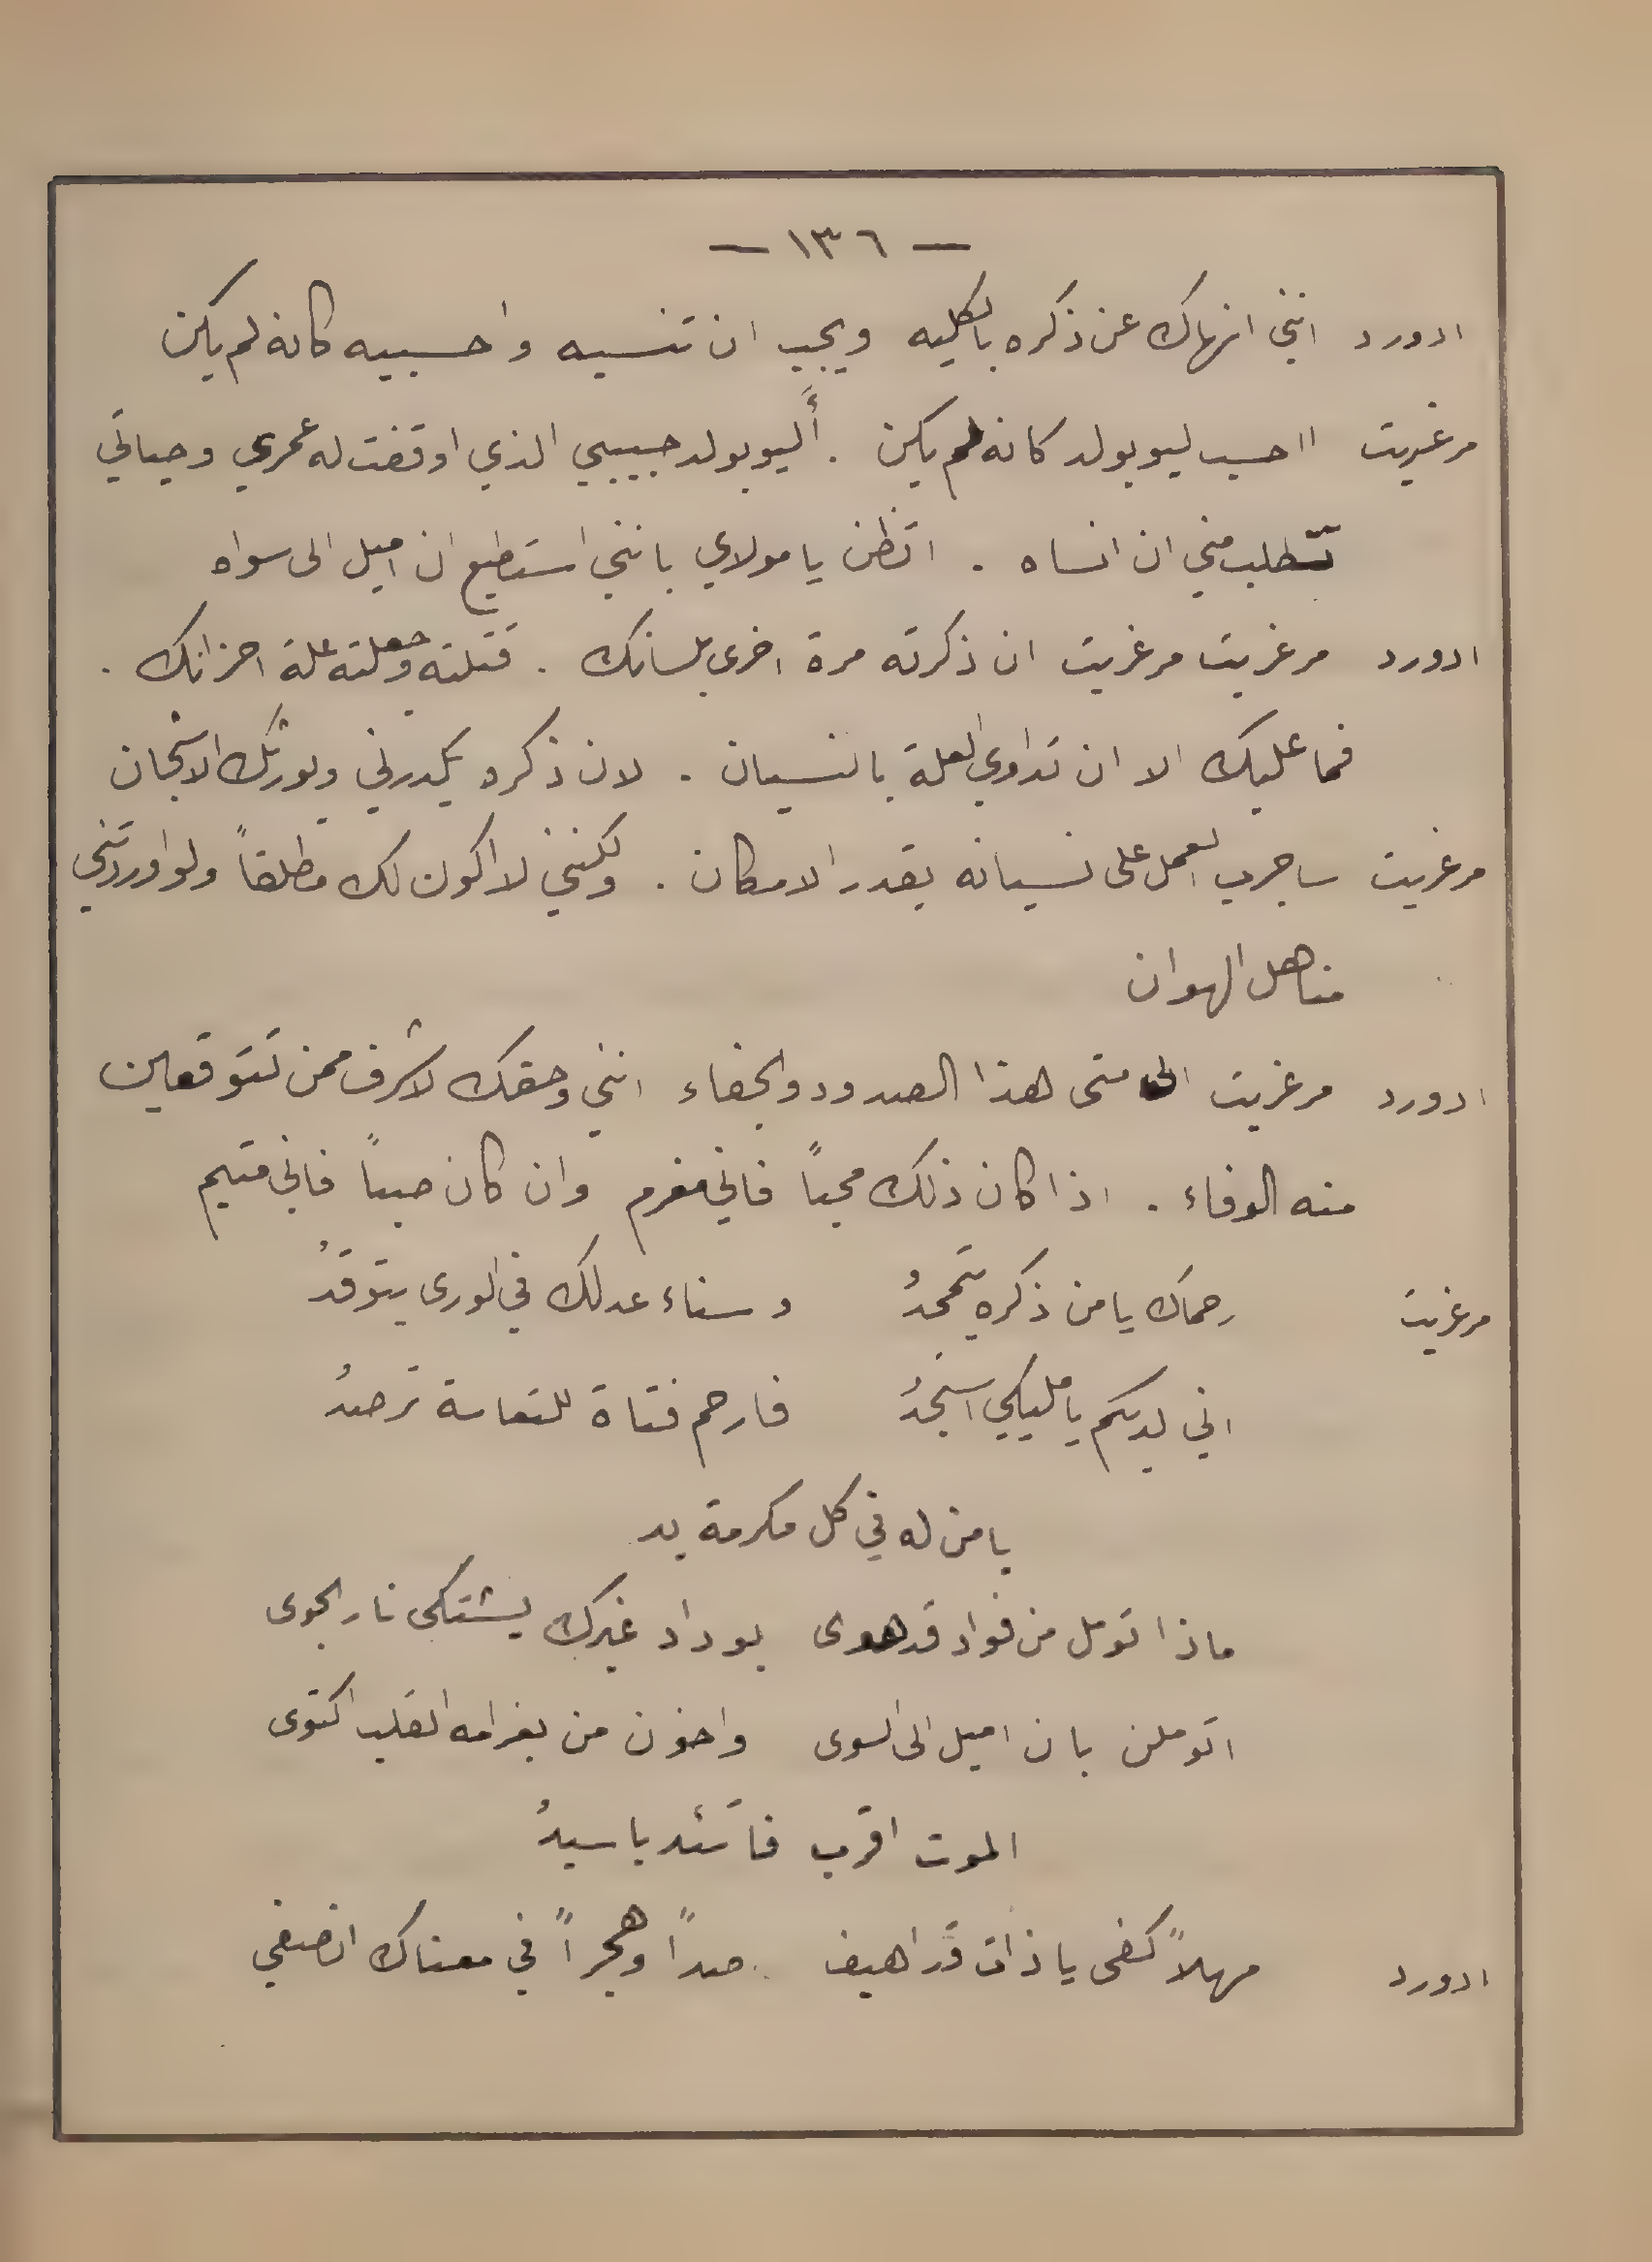 — ١٣٦ —
ادورد انني انهاك عن ذكره بالكليه ويجب ان تنسيه واحسبيه كانه لم يكن
مرغريت ااحسب ليوبولد كانه لم يكن . أليوبولد حبيبي الذي اوقفت له عمري وحياتي
تتطلب مني ان انساه . اتظن يا مولاي بانني استطيع ان اميل الى سواه
ادورد مرغريت مرغريت ان ذكرته مرة اخرى بلسانك . قتلته وجعلته علة احزانك .
فما عليك الا ان تداوي العلة بالنسيان . لان ذكره يكدرني ويورثك الاشجان
مرغريت ساجرب العمل على نسيانه بقدر الامكان . ولكنني لا اكون لك مطلقاً ولو اوردتني
مناهل الهوان
ادورد مرغريت الى متى هذا الصدود والجفاء انني وحقك لاشرف ممن تتوقعين
منه الوفاء . اذا كان ذلك محباً فاني مغرم وان كان صباً فاني متيم
مرغريت رحماك يا من ذكره يتمجدُ وسناء عدلك في الورى يتوقدُ
اني لديكم يا مليكي استنجدُ فارحم فتاة للتعاسة ترصدُ
يا من له في كل مكرمة يد
ماذا تومل من فواد قد هوى بوداد غيرك يشتكى نار الجوى
اتوملن بان اميل الى السوى واخون من بغرامه القلب اكتوى
الموت اقرب فاتئد يا سيدُ
ادورد مهلاً كفى يا ذات قد اهيف صداً وهجراً في معناك انصفي